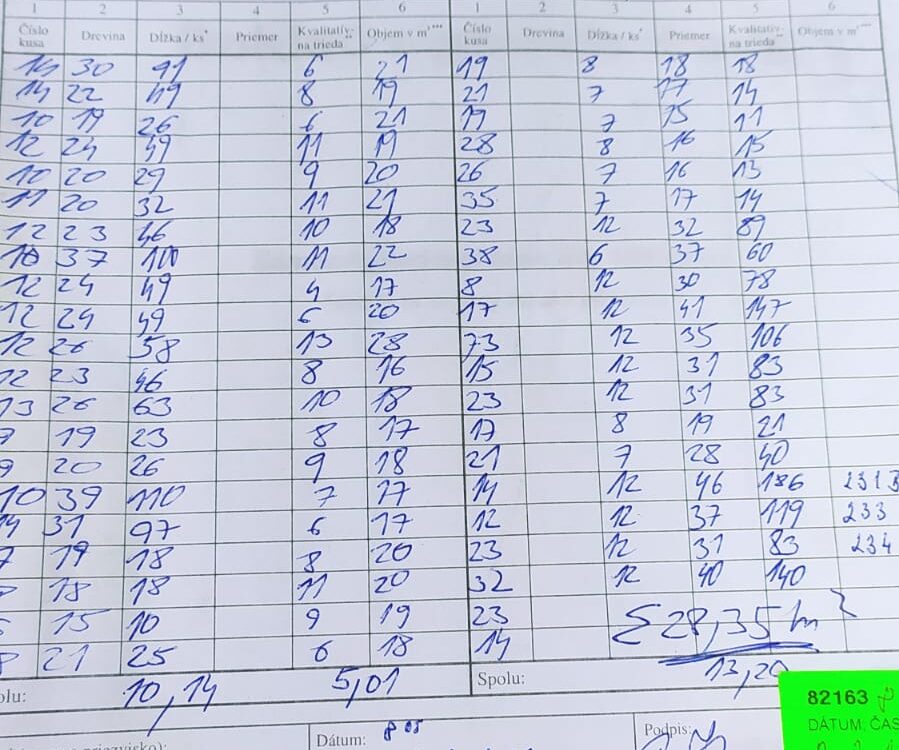 1 2 3 4 5 6 1 2 3 4 5 6
Číslo kusa Drevina Dĺžka / ks* Priemer Kvalitatív- na trieda** Objem v m³*** Číslo kusa Drevina Dĺžka / ks* Priemer Kvalitatív- na trieda** Objem v m³***
14 30 91 6 21 19 8 18 18
14 22 49 8 19 21 7 17 14
10 19 26 6 21 19 7 15 11
12 24 49 11 19 28 8 16 15
10 20 29 9 20 26 7 16 13
11 20 32 11 21 35 7 17 14
12 23 46 10 18 23 12 32 89
10 37 100 11 22 38 6 37 60
12 24 49 4 17 8 12 30 78
12 24 49 6 20 17 12 41 147
12 26 58 13 28 73 12 35 106
12 23 46 8 16 15 12 31 83
13 26 63 10 18 23 12 31 83
9 19 23 8 17 17 8 19 21
9 20 26 9 18 21 7 28 40
10 39 110 7 17 14 12 46 186 231B
14 31 97 6 17 12 12 37 119 233
7 19 18 8 20 23 12 31 83 234
18 18 11 20 32 12 40 140
15 10 9 19 23 Σ 28,35
8 21 25 6 18 14
olu: 10,14 5,01 Spolu: 13,20
82163
priezvisko): Dátum: Podpis: DÁTUM, ČAS